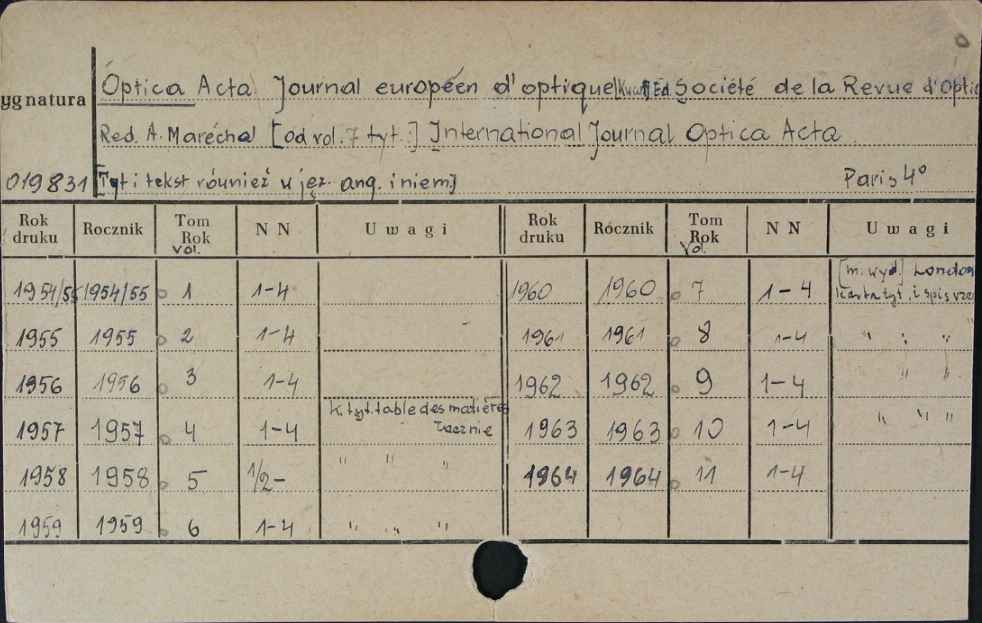 Optica Acta Journal européen d'optique [Kwart] Ed. Société de la Revue d'Optic
ygnatura
Red. A. Maréchal [od vol. 7 tyt.:] International Journal Optica Acta
019831 [Tyt i tekst również w jęz. ang. i niem] Paris 4°
Rok druku Rocznik Tom Rok Vol. NN Uwagi Rok druku Rocznik Tom Rok Vol. NN Uwagi
1954/55 1954/55 1 1-4 1960 1960 7 1-4 [m. wyd.] London karta tyt. i spis rze
1955 1955 2 1-4 1961 1961 8 1-4 " : "
1956 1956 3 1-4 1962 1962 9 1-4 " "
1957 1957 4 1-4 K. tyt. table des matières łącznie 1963 1963 10 1-4 " " "
1958 1958 5 1/2- " " " 1964 1964 11 1-4
1959 1959 6 1-4 " " "